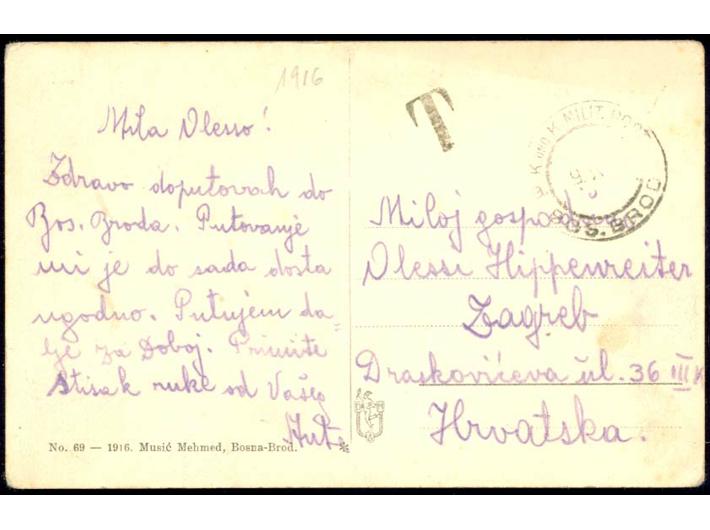 1916
Mila Olesso!
Zdravo doputovah do
Bos. Broda. Putovanje
mi je do sada dosta
ugodno. Putujem da=
lje za Doboj. Primite
stisak ruke od Vašeg
Ante
No. 69 — 1916. Musić Mehmed, Bosna-Brod.
T
K. UND K. MILIT. POST
BOS. BROD
Miloj
Olessi Hippenreiter
Zagreb
Draskovićeva ul. 36 III
Hrvatska.